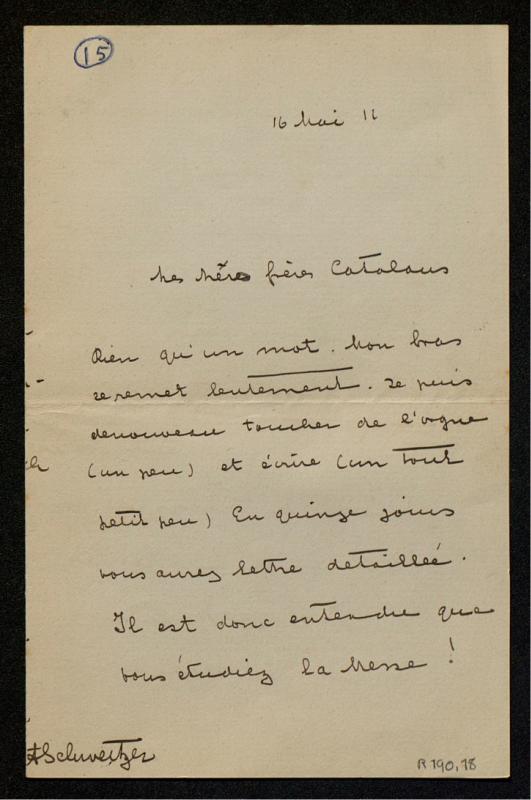 15
16 Mai 11
Mes frères Catalans
Rien qu'un mot. Mon bras
se remet lentement. Je puis
denouveau toucher de l'orgue
(un peu) et écrire (un tout
petit peu) En quinze jours
vous aurez lettre detailleé.
Il est donc entendu que
vous étudiez la Messe !
ASchweitzer
R 190,18